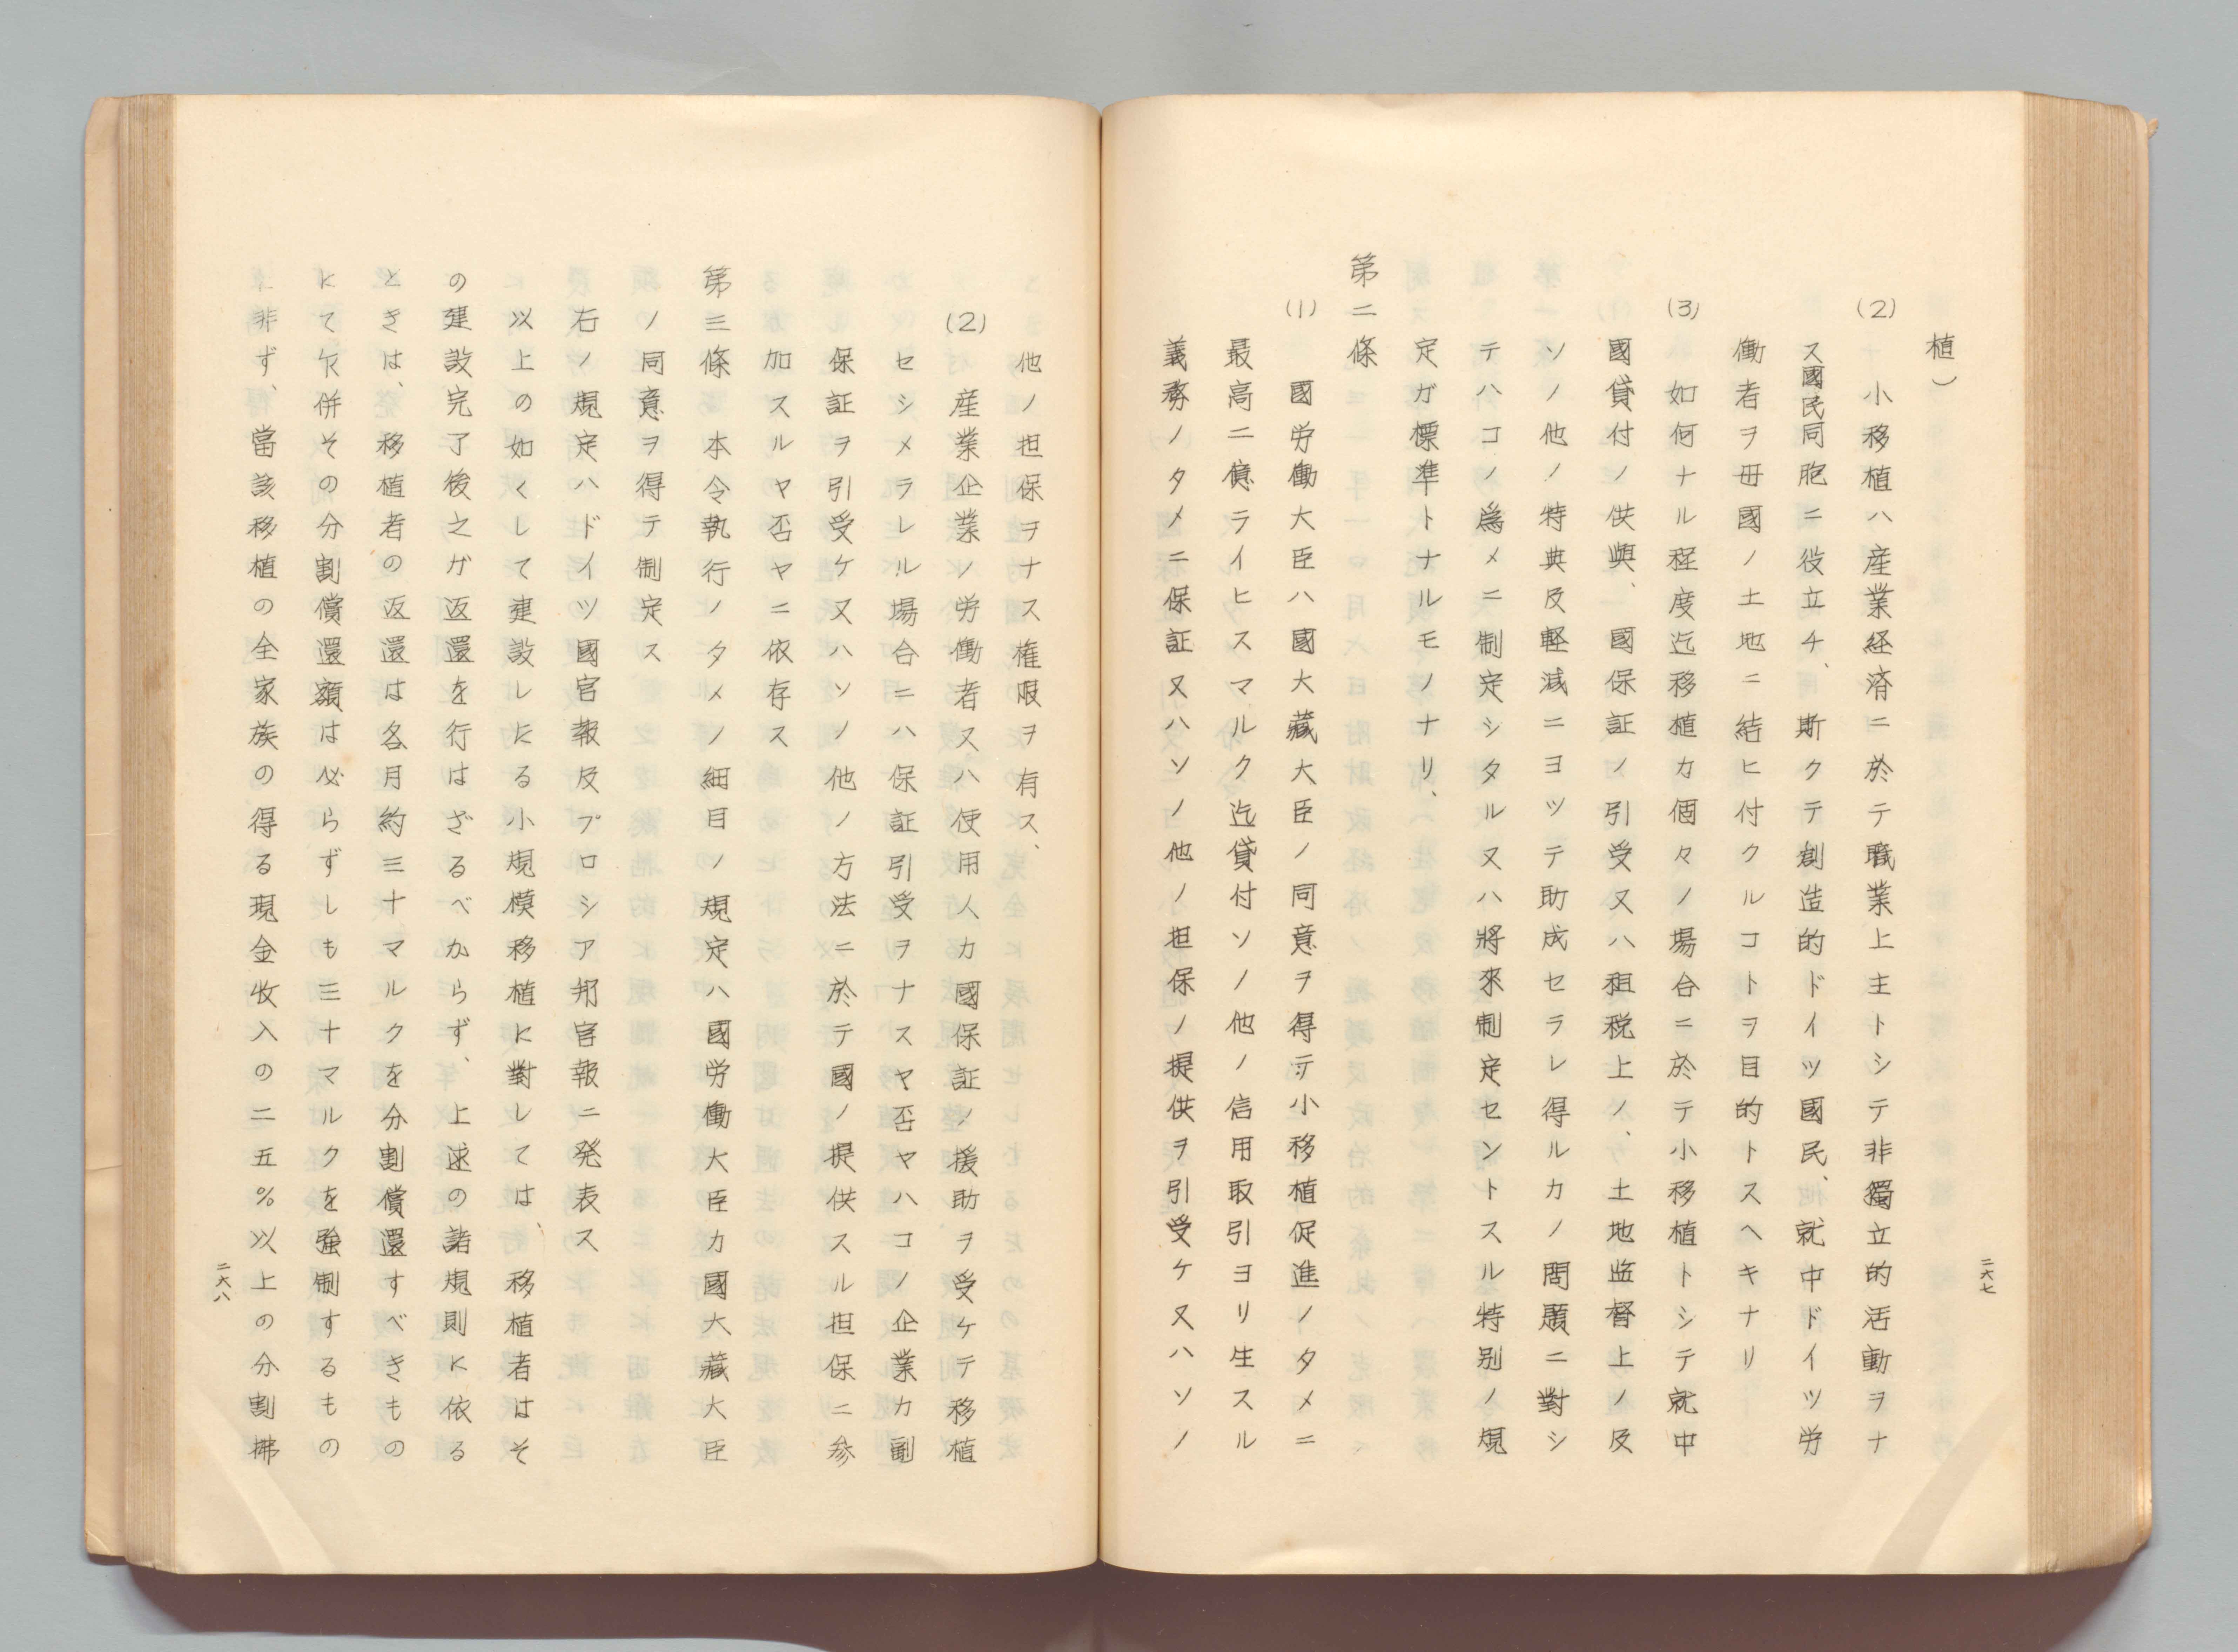 植）
(2)　小移植ハ産業経済ニ於テ職業上主トシテ非獨立的活動ヲナ
ス國民同胞ニ役立チ、斯クテ創造的ドイツ國民、就中ドイツ労
働者ヲ毌國ノ土地ニ結ヒ付クルコトヲ目的トスヘキナリ
(3)　如何ナル程度迄移植カ個々ノ場合ニ於テ小移植トシテ就中
國貸付ノ供與、國保証ノ引受又ハ租税上ノ、土地監督上ノ及
ソノ他ノ特典及軽減ニヨツテ助成セラレ得ルカノ問題ニ對シ
テハコノ爲メニ制定シタル又ハ將來制定セントスル特别ノ規
定ガ標準トナルモノナリ、
第二條
(1)　國労働大臣ハ國大藏大臣ノ同意ヲ得テ小移植促進ノタメニ
最高二億ライヒスマルク迄貸付ソノ他ノ信用取引ヨリ生スル
義務ノタメニ保証又ハソノ他ノ担保ノ提供ヲ引受ケ又ハソノ
二六七
他ノ担保ヲナス権限ヲ有ス、
(2)　産業企業ノ労働者又ハ使用人カ國保証ノ援助ヲ受ケテ移植
セシメラレル場合ニハ保証引受ヲナスヤ否ヤハコノ企業カ副
保証ヲ引受ケ又ハソノ他ノ方法ニ於テ國ノ提供スル担保ニ参
加スルヤ否ヤニ依存ス
第三條　本令執行ノタメノ細目ノ規定ハ國労働大臣カ國大藏大臣
ノ同意ヲ得テ制定ス
右ノ規定ハドイツ國官報及プロシア邦官報ニ発表ス
以上の如くして建設したる小規模移植に對しては、移植者はそ
の建設完了後之が返還を行はざるべからず、上述の諸規則に依る
ときは、移植者の返還は各月約三十マルクを分割償還すべきもの
にて下併その分割償還額は必らずしも三十マルクを強制するもの
に非ず、當該移植の全家族の得る現金收入の二五％以上の分割拂
二六八